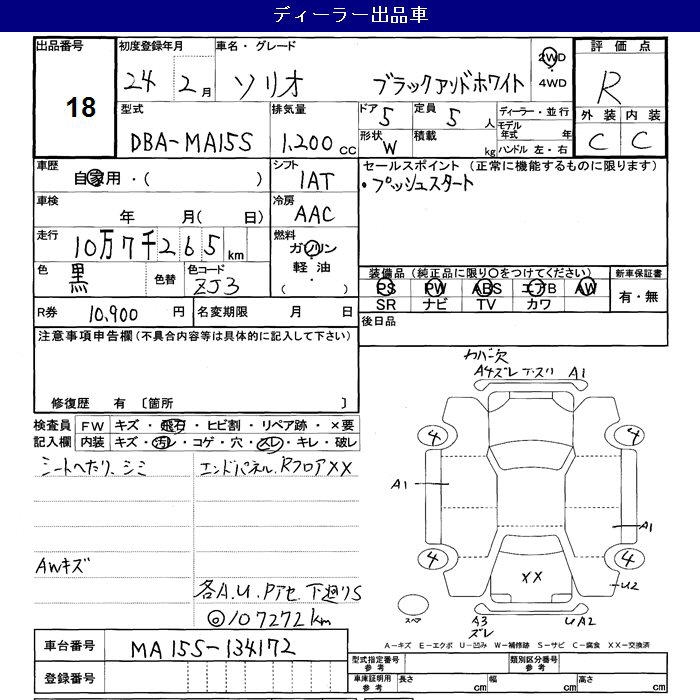 ディーラー出品車
出品番号
18
初度登録年月
24 2月
車名・グレード
ソリオ ブラックアンドホワイト
2WD
・
4WD
評価点
R
外装 内装
C C
型式
DBA-MA15S
排気量
1,200 cc
ドア 5
定員 5 人
形状 W
積載 kg
ディーラー・並行
モデル年式 年
ハンドル 左・右
車歴
自家用・( )
シフト
1AT
セールスポイント (正常に機能するものに限ります)
・プッシュスタート
車検
年 月( 日)
冷房
AAC
走行
10万7千265km
燃料
ガソリン
・
軽油
( )
色
黒
色替
色コード
ZJ3
装備品 (純正品に限り○をつけてください)
PS PW ABS エアB AW
SR ナビ TV カワ
新車保証書
有・無
R券 10,900 円
名変期限 月 日
後日品
注意事項申告欄 (不具合内容等は具体的に記入して下さい)
修復歴 有 〔箇所 〕
検査員記入欄
FW キズ・飛石・ヒビ割・リペア跡・×要
内装 キズ・汚レ・コゲ・穴・スレ・キレ・破レ
シートヘたり、シミ
エンドパネル、RフロアXX
AWキズ
各A.U.Pアセ 下廻りS
◎107272km
カバー欠
A4ズレ下スリ A1
4 4
A1
A1
4 4
XX
U2
スペア
A3
ズレ
UA2
A-キズ E-エクボ U-凹み W-補修跡 S-サビ C-腐食 XX-交換済
車台番号 MA15S-134172
登録番号
型式指定番号
参考
類別区分番号
参考
車庫証明用
参考
長さ cm
幅 cm
高さ cm